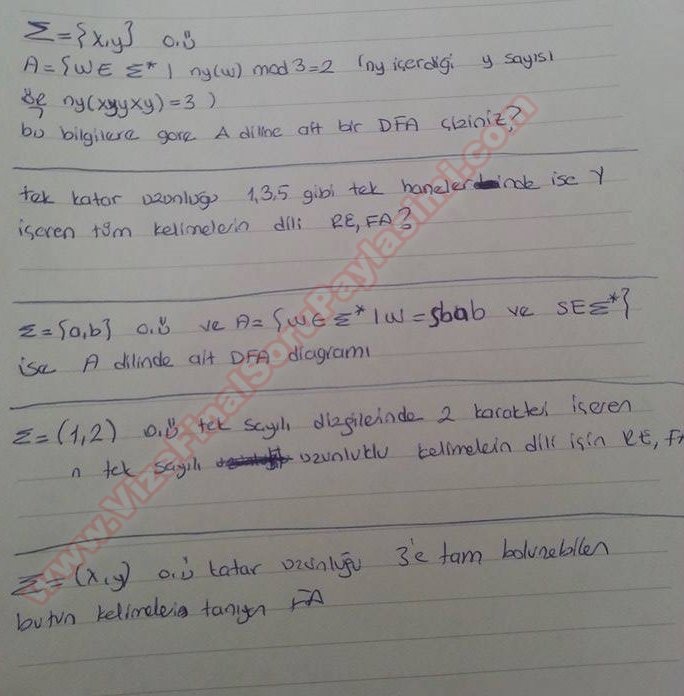 Σ={x,y} o.ü
A={W∈ Σ* | ny(w) mod 3=2 (ny içerdiği y sayısı
ör ny(xyyxy)=3 )
bu bilgilere göre A diline ait bir DFA çiziniz?
tek katar uzunluğu 1,3,5 gibi tek hanelerinde ise Y
içeren tüm kelimelerin dili RE, FA?
Σ={a,b} o.ü ve A= {W∈ Σ* | W = Sbab ve S∈Σ*}
ise A dilinde ait DFA diagramı
Σ=(1,2) o.ü tek sayılı dizgilerinde 2 karakteri içeren
n tek sayılı uzunluklu kelimelerin dili için RE, FA
Σ=(x,y) o.ü katar uzunluğu 3'e tam bölünebilen
butun kelimeleri tanıyan FA
www.VizeFinalSoruPaylasimi.com